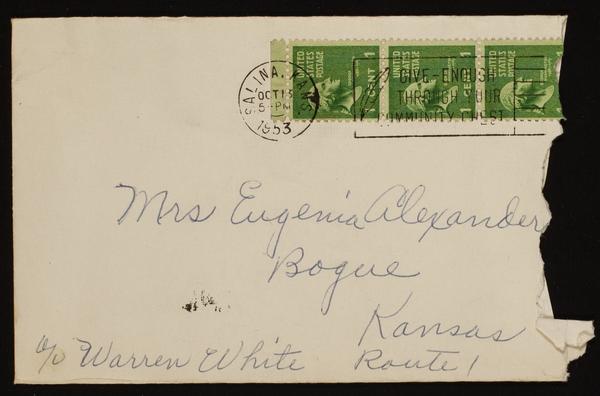 UNITED STATES POSTAGE 1 CENT
UNITED STATES POSTAGE 1 CENT
UNITED STATES POSTAGE
SALINA, KANS.
OCT 13
5-PM
1953
GIVE-ENOUGH
THROUGH YOUR
COMMUNITY CHEST
Mrs Eugenia Alexander
Bogue
Kansas
c/o Warren White Route 1